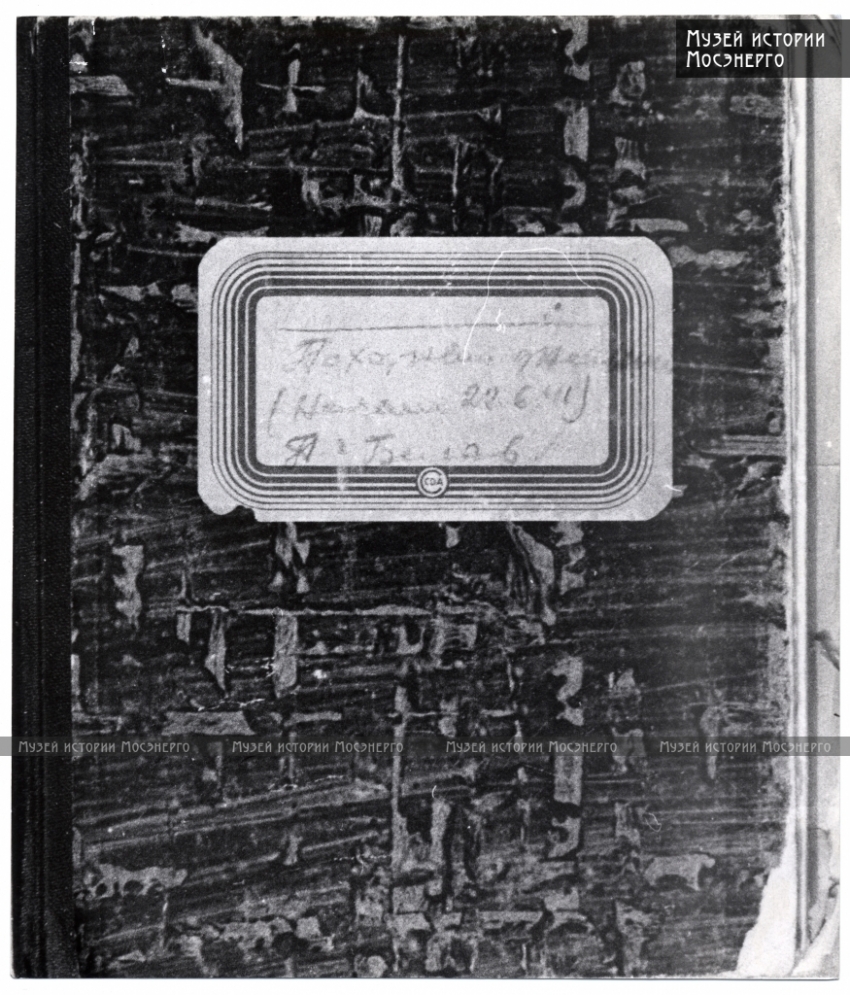 Музей истории
Мосэнерго
Походный дневник
(Начат 22.6.41)
П. Белов
CDA
Музей истории Мосэнерго Музей истории Мосэнерго Музей истории Мосэнерго Музей истории Мосэнерго